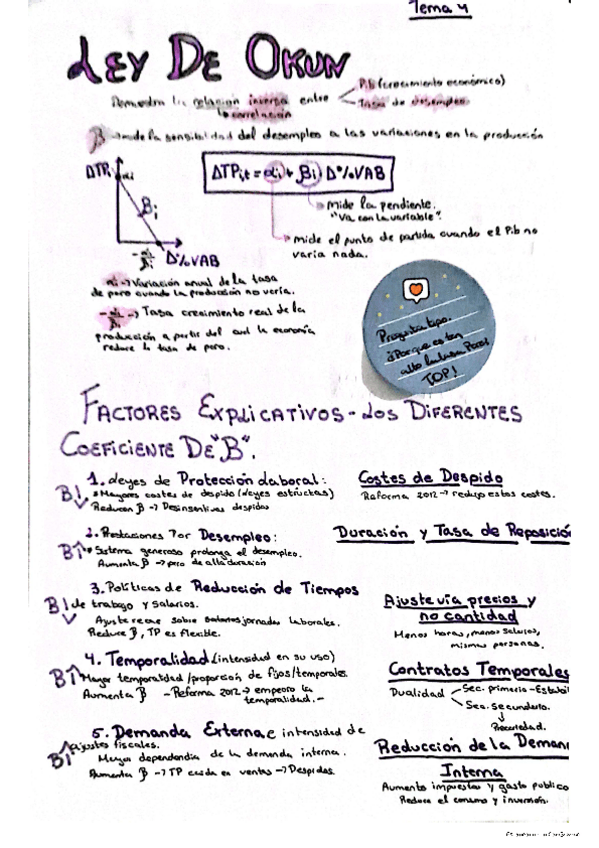 Tema 4
LEY DE OKUN
Pib (crecimiento económico)
Demuestra la relación inversa entre
Tasa de desempleo
correlación
β → mide la sensibilidad del desempleo a las variaciones en la producción
ΔTPi αi
ΔTPi,t = αi + βi Δ%VAB
βi
mide la pendiente.
"Va con la variable".
-αi/βi Δ%VAB
mide el punto de partida cuando el Pib no
varia nada.
αi → Variación anual de la tasa
de paro cuando la producción no varía.
-αi/βi → Tasa crecimiento real de la
producción a partir del cual la economía
reduce la tasa de paro.
Pregunta tipo.
¿Porque es tan
alta la tasa Paro?
TOP!
FACTORES EXPLICATIVOS - LOS DIFERENTES
COEFICIENTE DE "B".
1. Leyes de Protección Laboral: Costes de Despido
B↓ Mayores costes de despido (leyes estrictas) Reforma 2012 → redujo estos costes.
Reducen β → Desincentiva despidos
2. Prestaciones Por Desempleo: Duración y Tasa de Reposición
B↑ Sistema generoso prolonga el desempleo.
Aumenta β → paro de alta duración
3. Políticas de Reducción de Tiempos Ajuste vía precios y
B↓ de trabajo y salarios. no cantidad
Ajuste recae sobre jornadas laborales. Menos horas, menos salarios,
Reduce β, TP es flexible. mismas personas.
4. Temporalidad (intensidad en su uso) Contratos Temporales
B↑ Mayor temporalidad/proporción de fijos/temporales. Dualidad Sec. primario - Estabil
Aumenta β - Reforma 2012 → empeoro la Sec. secundario.
temporalidad. - Precariedad.
5. Demanda Externa e intensidad de Reducción de la Deman
B↑ ajustes fiscales. Interna
Mayor dependencia de la demanda interna. Aumento impuestos y gasto publico
Aumenta β → TP caida en ventas → Despidos. Reduce el consumo y inversión.